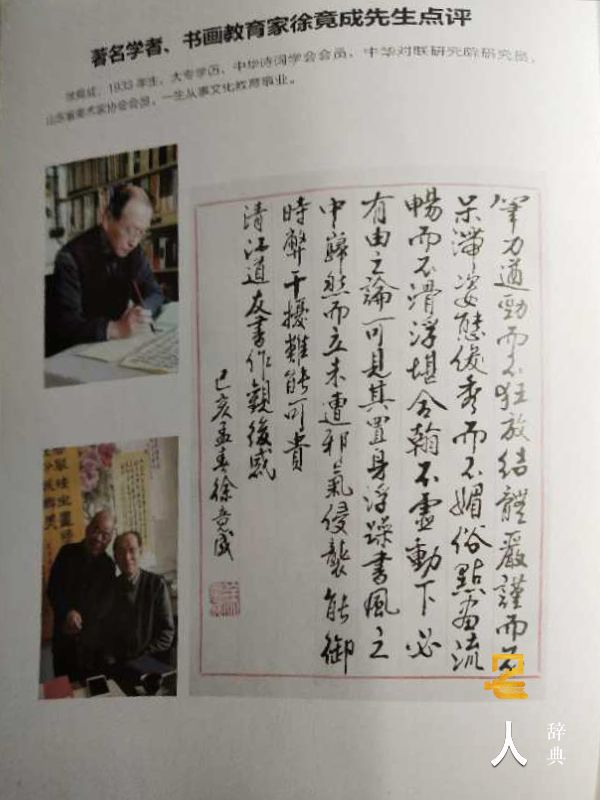 著名学者、书画教育家徐竟成先生点评
徐竟成，1933年生，大专学历，中华诗词学会会员，中华对联研究院研究员，
山东省美术家协会会员，一生从事文化教育事业。
筆力遒勁而不狂放結體嚴謹而不
呆滯姿態俊秀而不媚俗點畫流
暢而不滑浮堪舍翰不虛動下必
有由之論可見其置身浮躁書風之
中歸然而立未遭邪氣侵襲能御
時弊干擾難能可貴
清江道友書作觀後感
己亥孟春徐竟成
人
辞典